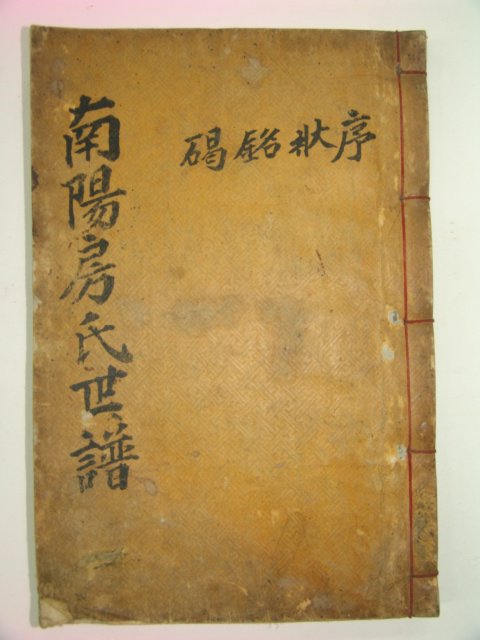 南陽房氏世譜
序狀銘碣